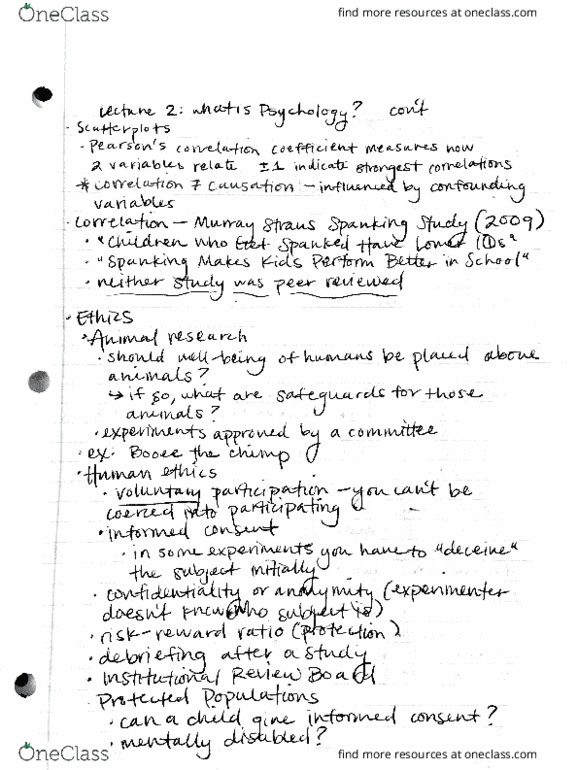 OneClass
find more resources at oneclass.com
Lecture 2: what is Psychology? con't
· Scatterplots
· Pearson's correlation coefficient measures how
2 variables relate ±1 indicate strongest correlations
* correlation ≠ causation – influenced by confounding
variables
· Correlation – Murray Straus Spanking Study (2009)
· "Children Who Get Spanked Have Lower IQs"
· "Spanking Makes Kids Perform Better in School"
· neither study was peer reviewed
· Ethics
· Animal research
· should well-being of humans be placed above
animals?
↳ if so, what are safeguards for those
animals?
· experiments approved by a committee
· ex: Booee the chimp
· Human ethics
· voluntary participation – you can't be
coerced into participating
· informed consent
· in some experiments you have to "deceive"
the subject initially
· confidentiality or anonymity (experimenter
doesn't know who subject is)
· risk-reward ratio (protection)
· debriefing after a study
· Institutional Review Board
Protected Populations
· can a child give informed consent?
· mentally disabled?
OneClass
find more resources at oneclass.com